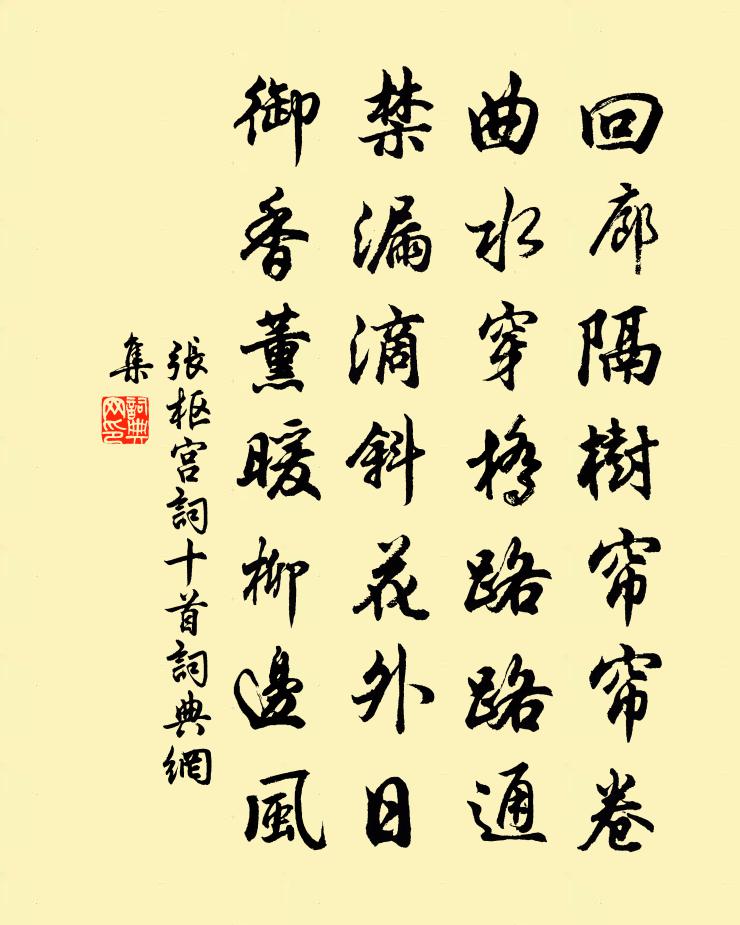 回廊隔樹帘帘卷
曲水穿橋路路通
禁漏滴斜花外日
御香薰暖柳邊風
張枢宮詞十首詞典網
集
詞典
网印